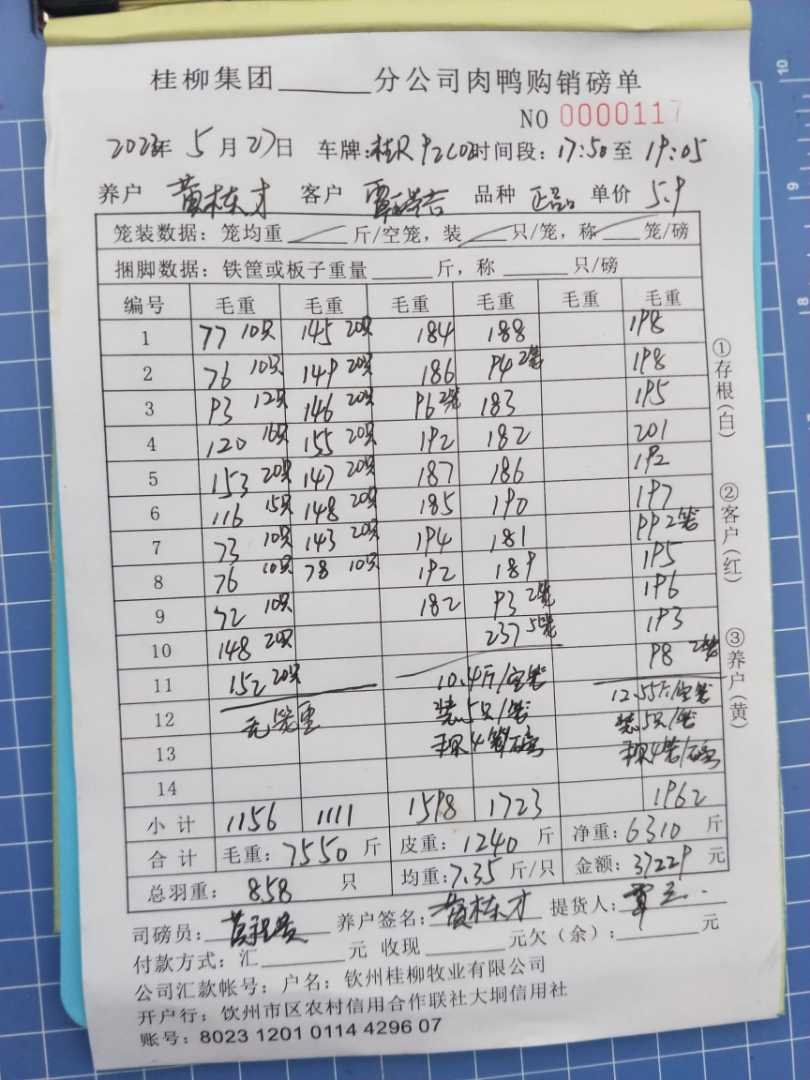 桂柳集团______分公司肉鸭购销磅单
NO 0000117
2023年 5月27日 车牌:桂R 92C02 时间段:17:50至19:05
养户 黄栋才 客户 覃 品种 正品 单价 5.9
笼装数据:笼均重______斤/空笼,装____只/笼,称____笼/磅
捆脚数据:铁筐或板子重量______斤,称______只/磅
编号 毛重 毛重 毛重 毛重 毛重 毛重
1 77 10只 145 20只 184 188 198
2 76 10只 149 20只 186 94 2笼 198
3 93 12只 146 20只 96 2笼 183 195
4 120 16只 155 20只 192 182 201
5 153 20只 147 20只 187 186 192
6 116 15只 148 20只 185 190 197
7 73 10只 143 20只 194 181 99 2笼
8 76 10只 78 10只 192 189 195
9 72 10只 182 93 2笼 196
10 148 20只 237 5笼 193
11 152 20只 10.4斤/空笼 98 2笼
12 无笼重 装5只/笼 12.55斤/空笼
13 称4笼/磅 装5只/笼
14 称4笼/磅
小计 1156 1111 1598 1723 1962
合计 毛重:7550斤 皮重:1240斤 净重:6310斤
总羽重:858只 均重:7.35斤/只 金额:37229元
司磅员: 养户签名:黄栋才 提货人:覃
付款方式:汇______元 收现______元欠(余):______元
公司汇款帐号:户名:钦州桂柳牧业有限公司
开户行:钦州市区农村信用合作联社大垌信用社
账号:8023 1201 0114 4296 07
①存根(白) ②客户(红) ③养户(黄)